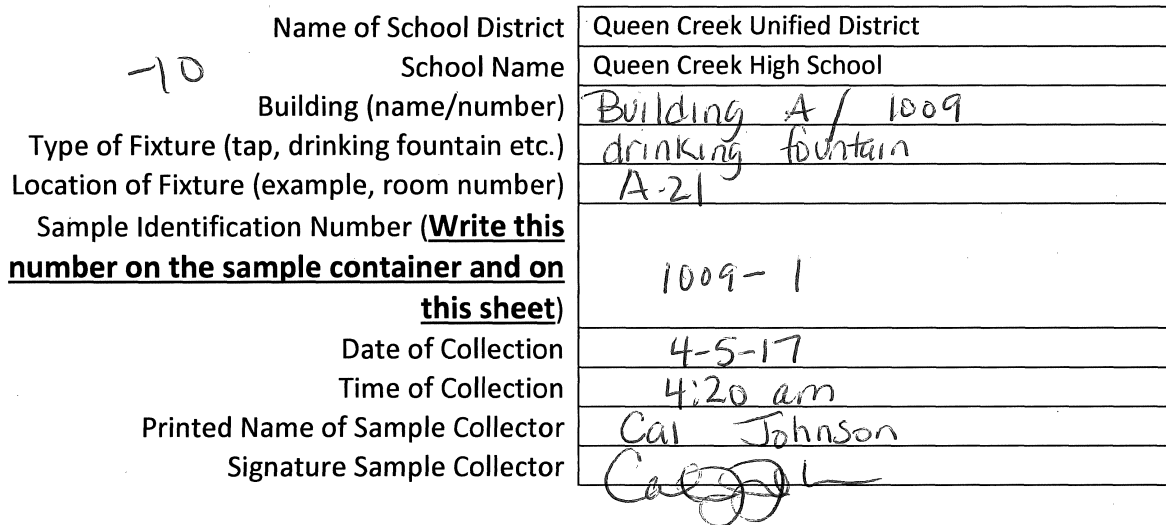 Name of School District Queen Creek Unified District
-10
School Name Queen Creek High School
Building (name/number) Building A / 1009
Type of Fixture (tap, drinking fountain etc.) drinking fountain
Location of Fixture (example, room number) A-21
Sample Identification Number (Write this
number on the sample container and on
this sheet) 1009-1
Date of Collection 4-5-17
Time of Collection 4:20 am
Printed Name of Sample Collector Cal Johnson
Signature Sample Collector